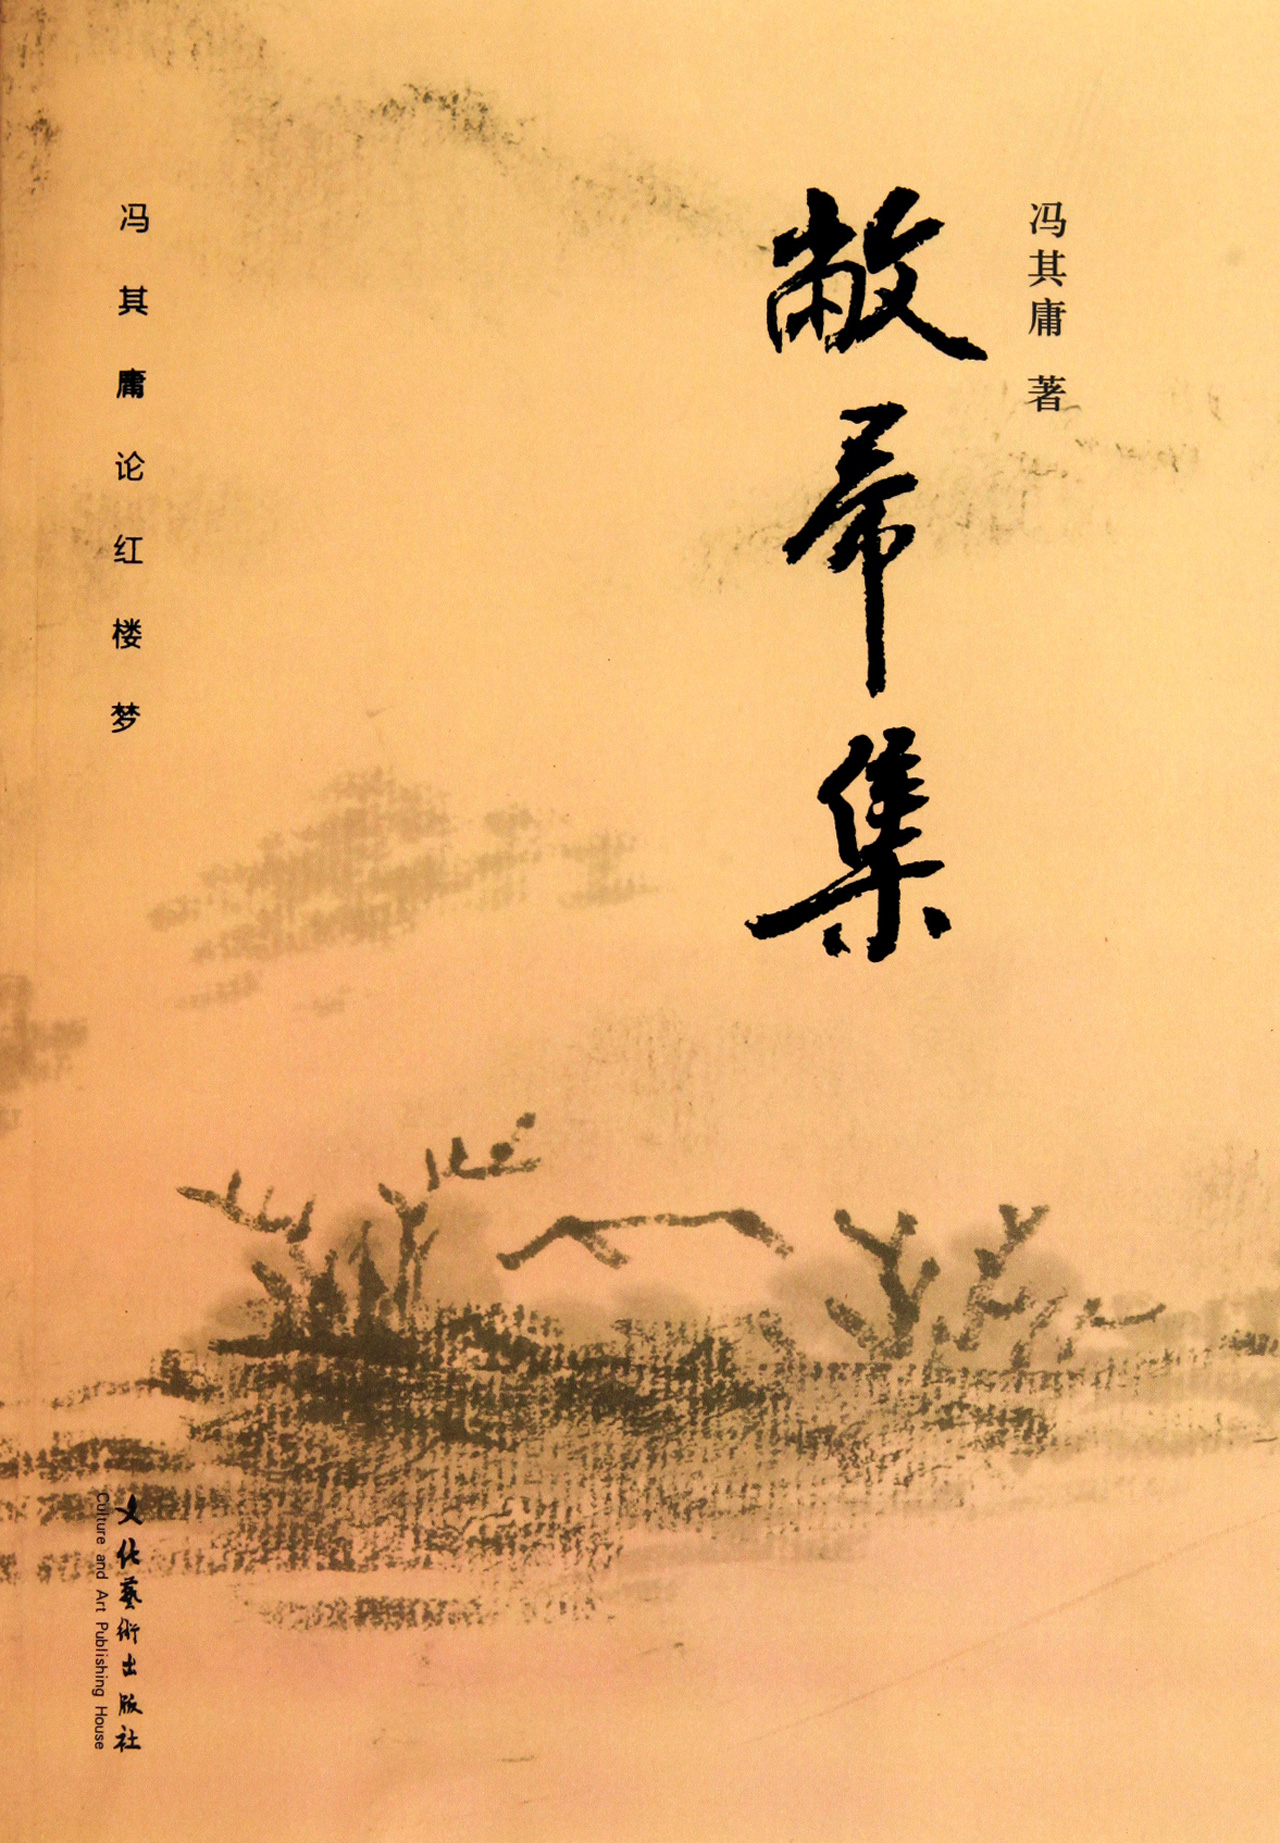 冯其庸 著
敝帚集
冯其庸论红楼梦
文化藝術出版社
Culture and Art Publishing House